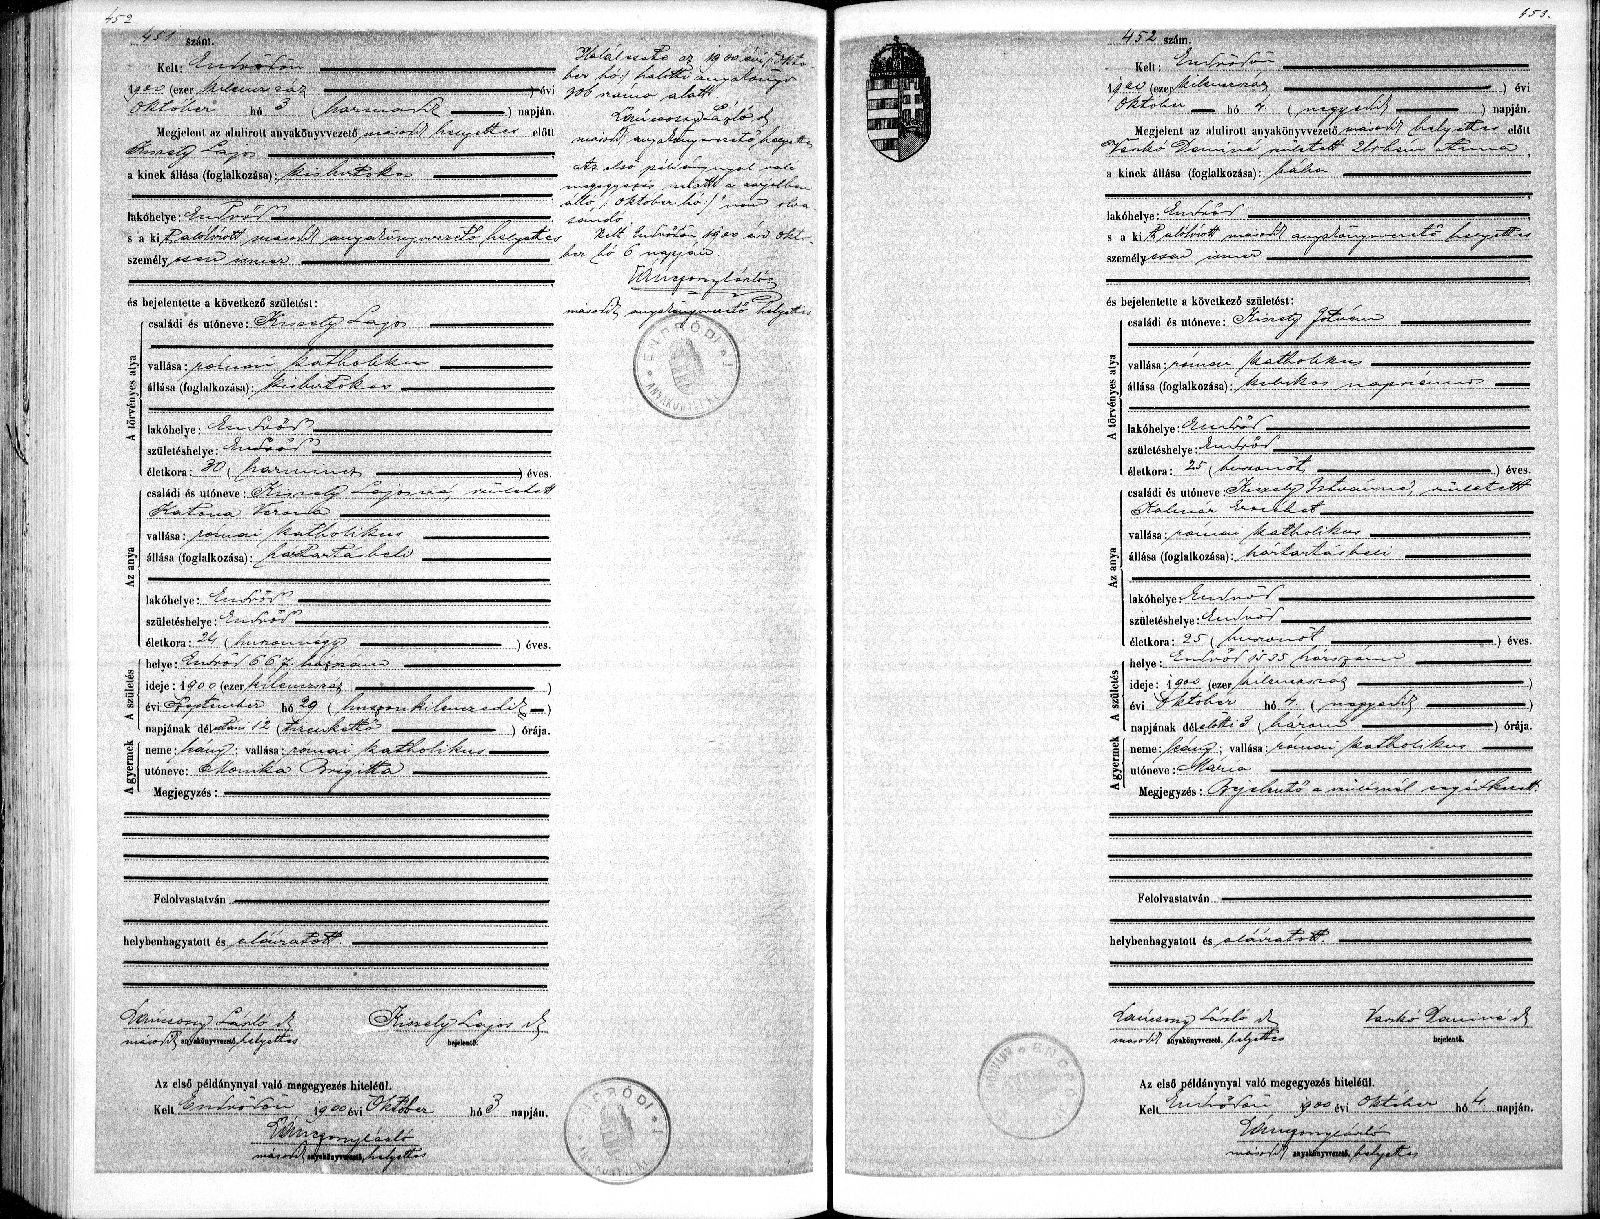 452
451 szám.
Kelt: Endrődön
1900 (ezer kilenczszáz ) évi
Október hó 3 (harmadik ) napján.
Megjelent az alulirott anyakönyvvezető másodk helyettes előtt
Kiszely Lajos
a kinek állása (foglalkozása): kisbirtokos
lakóhelye: Endrőd
s a kit alólirott másodk anyakönyvvezető helyettes
személyesen ismer
és bejelentette a következő születést:
A törvényes atya
családi és utóneve: Kiszely Lajos
vallása: római katholikus
állása (foglalkozása): kisbirtokos
lakóhelye: Endrőd
születéshelye: Endrőd
életkora: 30 (harmincz ) éves.
Az anya
családi és utóneve: Kiszely Lajosné, született
Katona Verona
vallása: római katholikus
állása (foglalkozása): háztartásbeli
lakóhelye: Endrőd
születéshelye: Endrőd
életkora: 24 (huszonnégy ) éves.
A születés
helye: Endrőd 667 házszám
ideje: 1900 (ezer kilenczszáz )
évi Szeptember hó 29 (huszonkilenczedik )
napjának délutáni 12 (tizenkettő ) órája.
A gyermek
neme: leány; vallása: római katholikus
utóneve: Monika Brigitta
Megjegyzés:
Felolvastatván
helybenhagyatott és aláiratott.
Lánczony László sk
másodk anyakönyvvezető. helyettes
Kiszely Lajos sk
bejelentő.
Az első példánynyal való megegyezés hiteléül.
Kelt Endrődön 1900 évi Október hó 3 napján.
Lánczony László
másodk anyakönyvvezető, helyettes
Halálesete az 1900 évi (: Októ-
ber hó :) halotti anyakönyv
306 száma alatt
Lánczony László sk
másodk anyakönyvvezető, helyettes
Az első példánynyal való
megegyezés miatt a zárjelben
álló (: Október hó :) nem olva-
sandó
Kelt Endrődön 1900 évi Októ-
ber hó 6 napján.
Lánczony László
másodk anyakönyvvezető helyettes
453.
452 szám.
Kelt: Endrődön
1900 (ezer kilenczszáz ) évi
Október hó 4 (negyedik ) napján.
Megjelent az alulirott anyakönyvvezető másodk helyettes előtt
Vaskó Dániné született Anna,
a kinek állása (foglalkozása): bába
lakóhelye: Endrőd
s a kit alólirott másodk anyakönyvvezető helyettes
személyesen ismer
és bejelentette a következő születést:
A törvényes atya
családi és utóneve: Kiszely István
vallása: római katholikus
állása (foglalkozása): napszámos
lakóhelye: Endrőd
születéshelye: Endrőd
életkora: 25 (huszonöt ) éves.
Az anya
családi és utóneve: Kiszely Istvánné, született
Kalmár Erzsébet
vallása: római katholikus
állása (foglalkozása): háztartásbeli
lakóhelye: Endrőd
születéshelye: Endrőd
életkora: 25 (huszonöt ) éves.
A születés
helye: Endrőd 1535 házszám
ideje: 1900 (ezer kilenczszáz )
évi Október hó 4 (negyedik )
napjának délelőtti 3 (három ) órája.
A gyermek
neme: leány; vallása: római katholikus
utóneve: Mária
Megjegyzés: Bejelentő a szülésnél segédkezett.
Felolvastatván
helybenhagyatott és aláiratott.
Lánczony László sk
másodk anyakönyvvezető. helyettes
Vaskó Dániné sk
bejelentő.
Az első példánynyal való megegyezés hiteléül.
Kelt Endrődön 1900 évi Október hó 4 napján.
Lánczony László
másodk anyakönyvvezető, helyettes